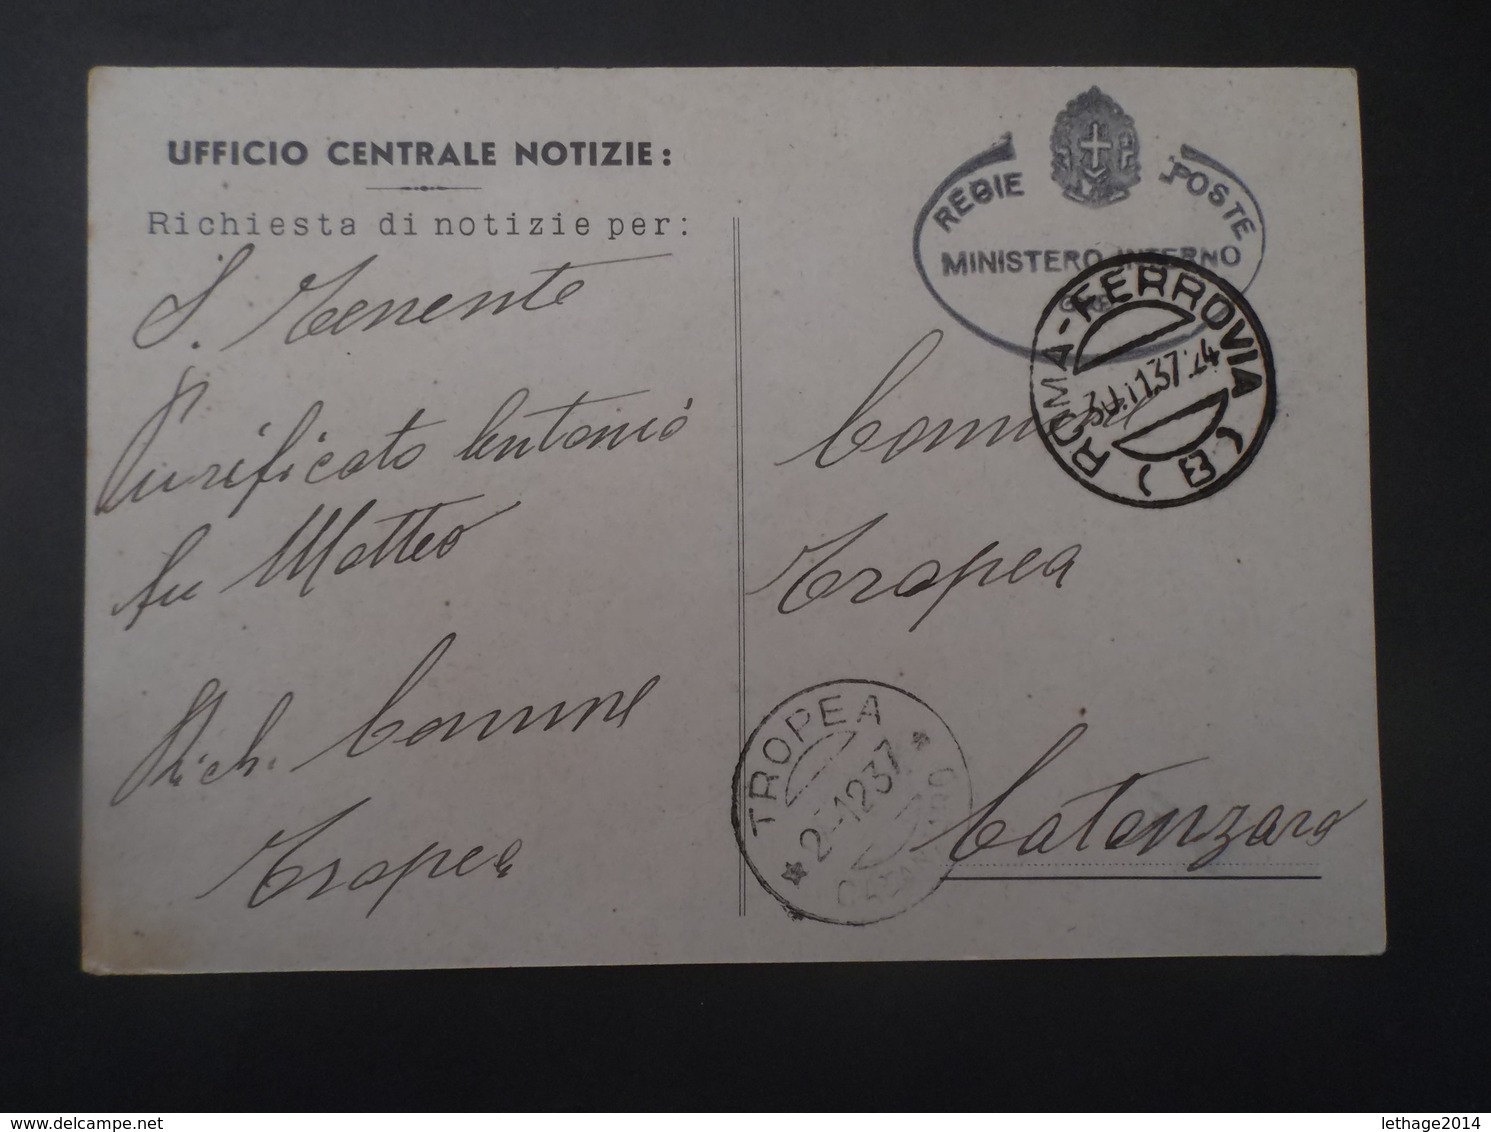 UFFICIO CENTRALE NOTIZIE:
Richiesta di notizie per:
S. Tenente
Purificato Antonio
fu Matteo
Rich. Comune
Tropea
REGIE POSTE
MINISTERO INTERNO
ROMA-FERROVIA (B)
Comune
Tropea
Catanzaro
TROPEA
2-12 37
CATANZARO
www.delcampe.net
lethage2014